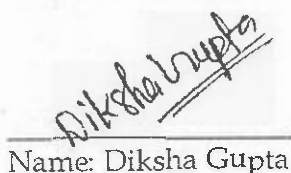 Diksha Gupta
Name: Diksha Gupta